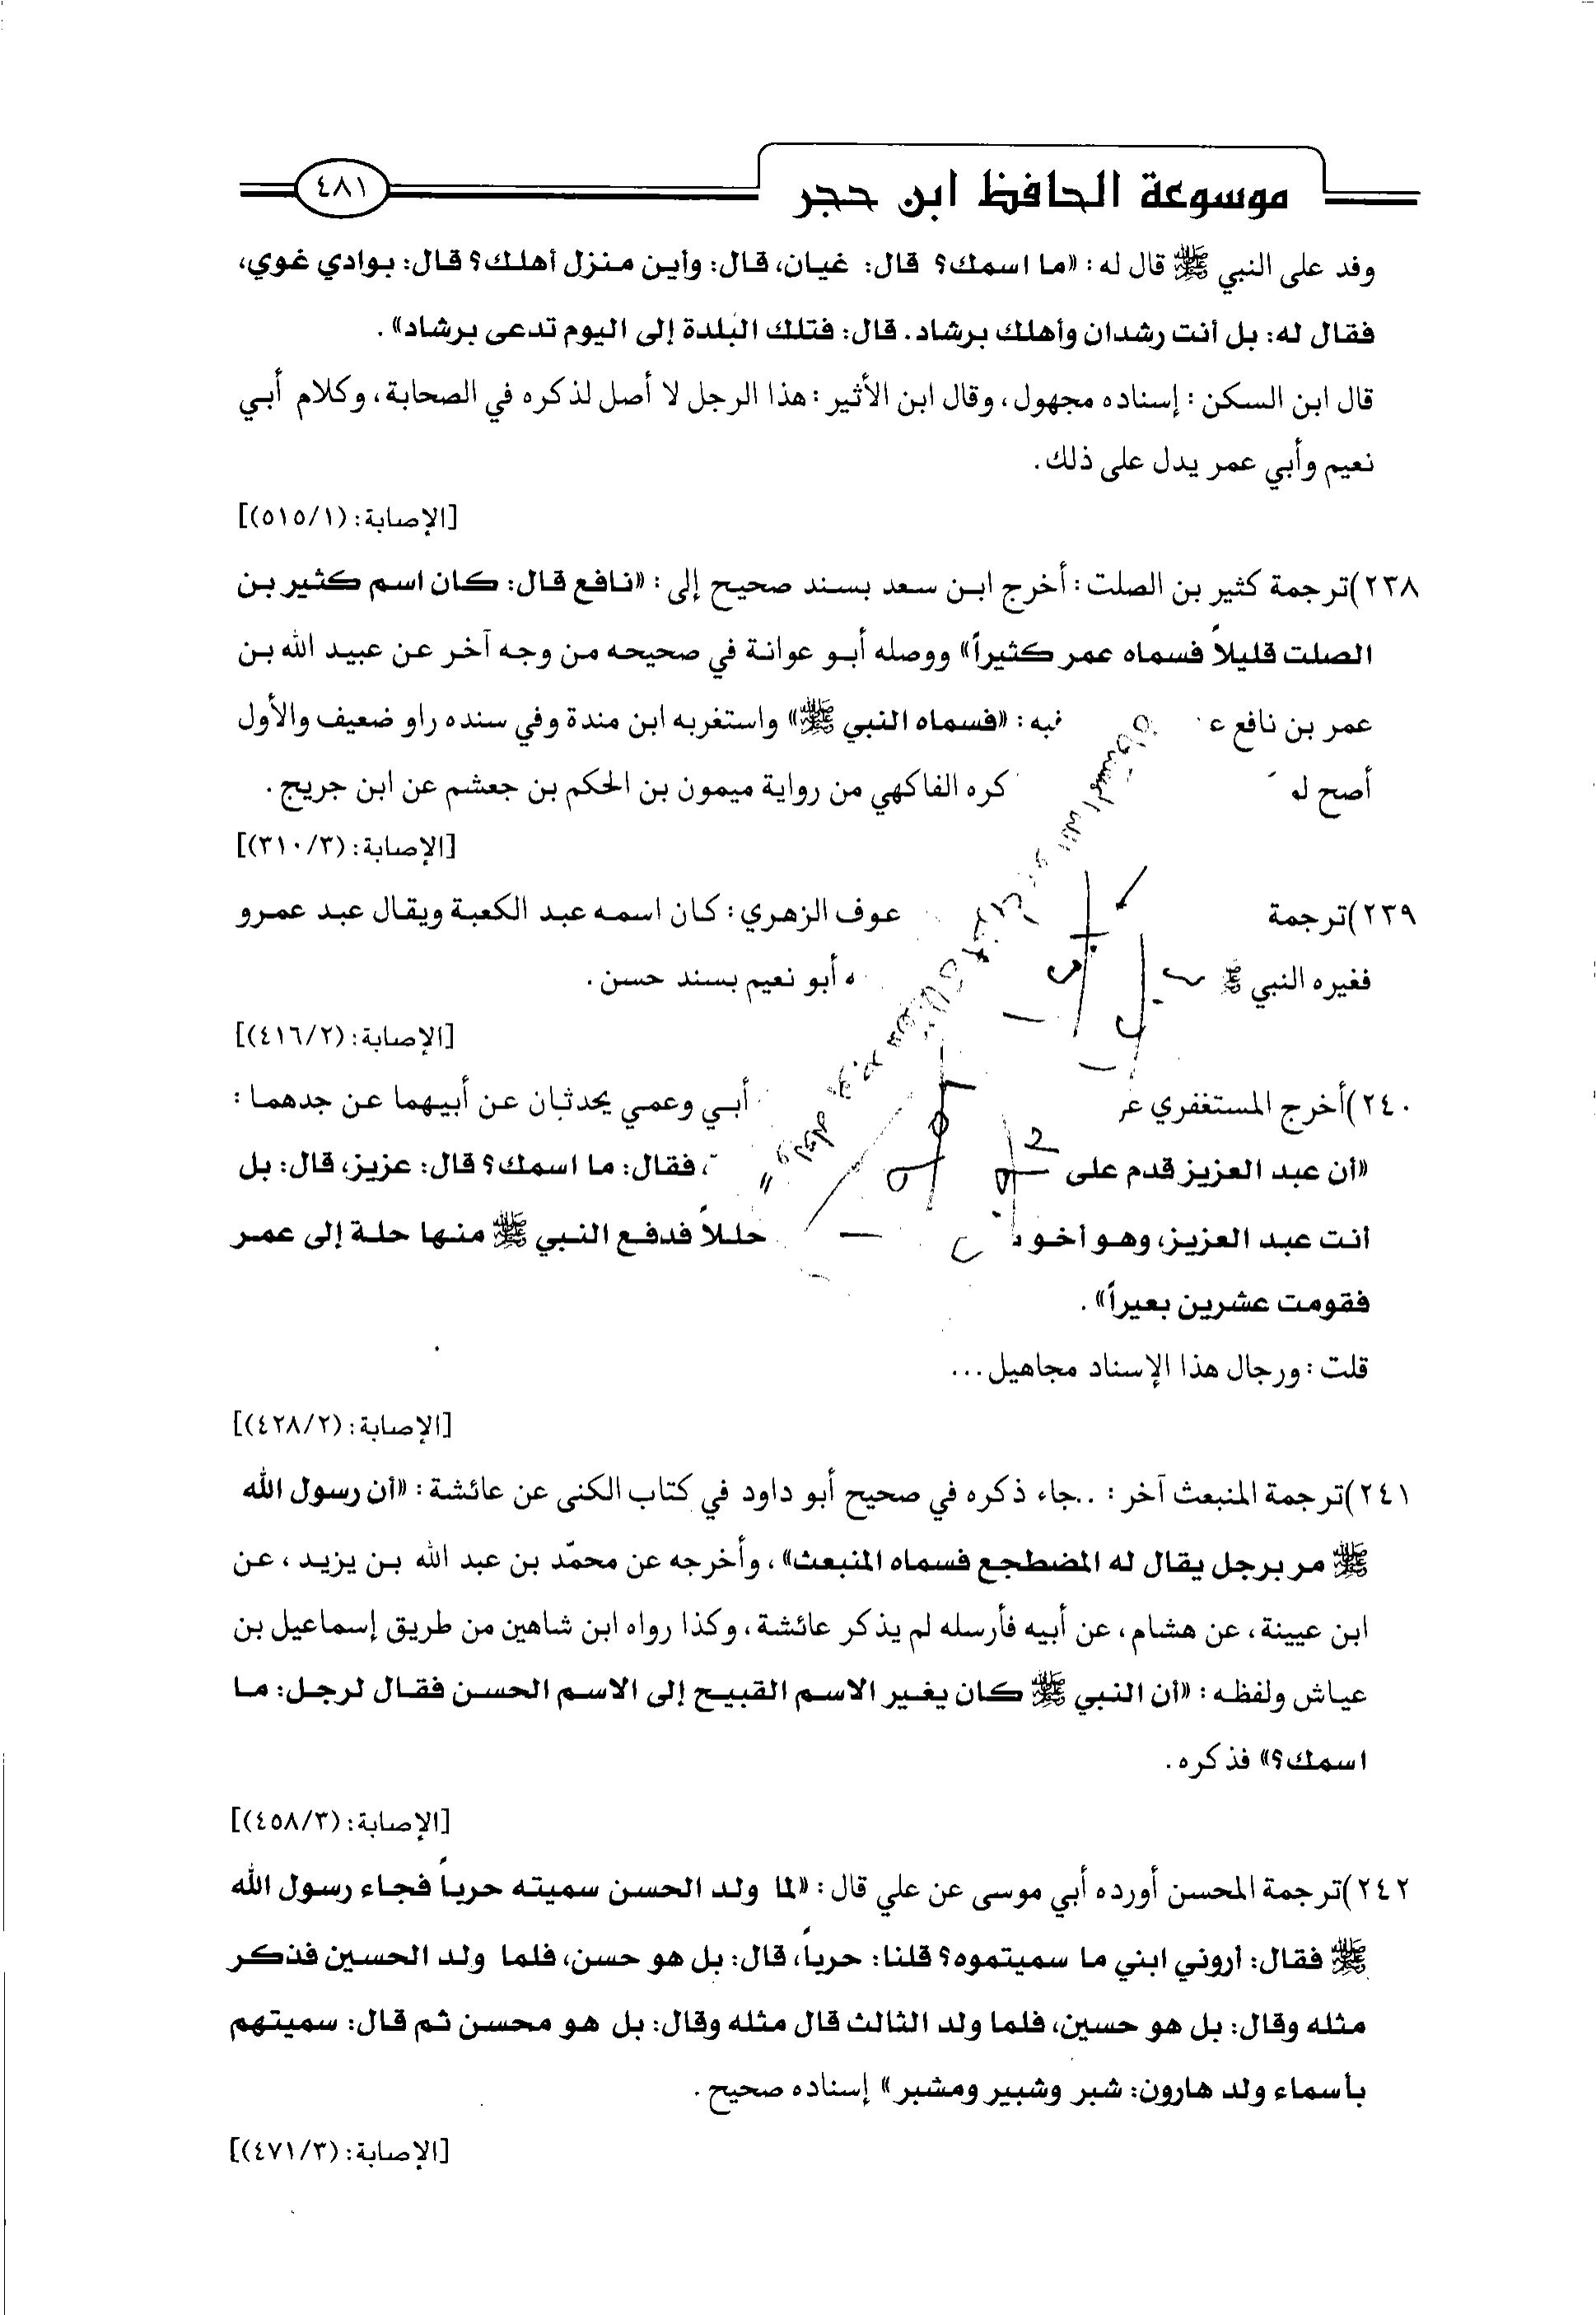 موسوعة الحافظ ابن حجر
٤٨١
وفد على النبي ﷺ قال له: «ما اسمك؟ قال: غيان، قال: وأين منزل أهلك؟ قال: بوادي غوي،
فقال له: بل أنت رشدان وأهلك برشاد. قال: فتلك البلدة إلى اليوم تدعى برشاد».
قال ابن السكن: إسناده مجهول، وقال ابن الأثير: هذا الرجل لا أصل لذكره في الصحابة، وكلام أبي
نعيم وأبي عمر يدل على ذلك.
[الإصابة: (٥١٥/١)]
٢٣٨) ترجمة كثير بن الصلت: أخرج ابن سعد بسند صحيح إلى: «نافع قال: كان اسم كثير بن
الصلت قليلاً فسماه عمر كثيراً» ووصله أبو عوانة في صحيحه من وجه آخر عن عبيد الله بن
عمر بن نافع فيه: «فسماه النبي ﷺ» واستغربه ابن مندة وفي سنده راو ضعيف والأول
أصح كره الفاكهي من رواية ميمون بن الحكم بن جعشم عن ابن جريج.
[الإصابة: (٣١٠/٣)]
٢٣٩) ترجمة عوف الزهري: كان اسمه عبد الكعبة ويقال عبد عمرو
فغيره النبي ﷺ أبو نعيم بسند حسن.
[الإصابة: (٤١٦/٢)]
٢٤٠) أخرج المستغفري أبي وعمي يحدثان عن أبيهما عن جدهما:
«أن عبد العزيز قدم على ، فقال: ما اسمك؟ قال: عزيز، قال: بل
أنت عبد العزيز، وهو أخو حللاً فدفع النبي ﷺ منها حلة إلى عمر
فقومت عشرين بعيراً».
قلت: ورجال هذا الإسناد مجاهيل...
[الإصابة: (٤٢٨/٢)]
٢٤١) ترجمة المنبعث آخر: ..جاء ذكره في صحيح أبو داود في كتاب الكنى عن عائشة: «أن رسول الله
ﷺ مر برجل يقال له المضطجع فسماه المنبعث»، وأخرجه عن محمّد بن عبد الله بن يزيد، عن
ابن عيينة، عن هشام، عن أبيه فأرسله لم يذكر عائشة، وكذا رواه ابن شاهين من طريق إسماعيل بن
عياش ولفظه: «أن النبي ﷺ كان يغير الاسم القبيح إلى الاسم الحسن فقال لرجل: ما
اسمك؟» فذكره.
[الإصابة: (٤٥٨/٣)]
٢٤٢) ترجمة المحسن أورده أبي موسى عن علي قال: «لما ولد الحسن سميته حرباً فجاء رسول الله
ﷺ فقال: أروني ابني ما سميتموه؟ قلنا: حرباً، قال: بل هو حسن، فلما ولد الحسين فذكر
مثله وقال: بل هو حسين، فلما ولد الثالث قال مثله وقال: بل هو محسن ثم قال: سميتهم
بأسماء ولد هارون: شبر وشبير ومشبر» إسناده صحيح.
[الإصابة: (٤٧١/٣)]